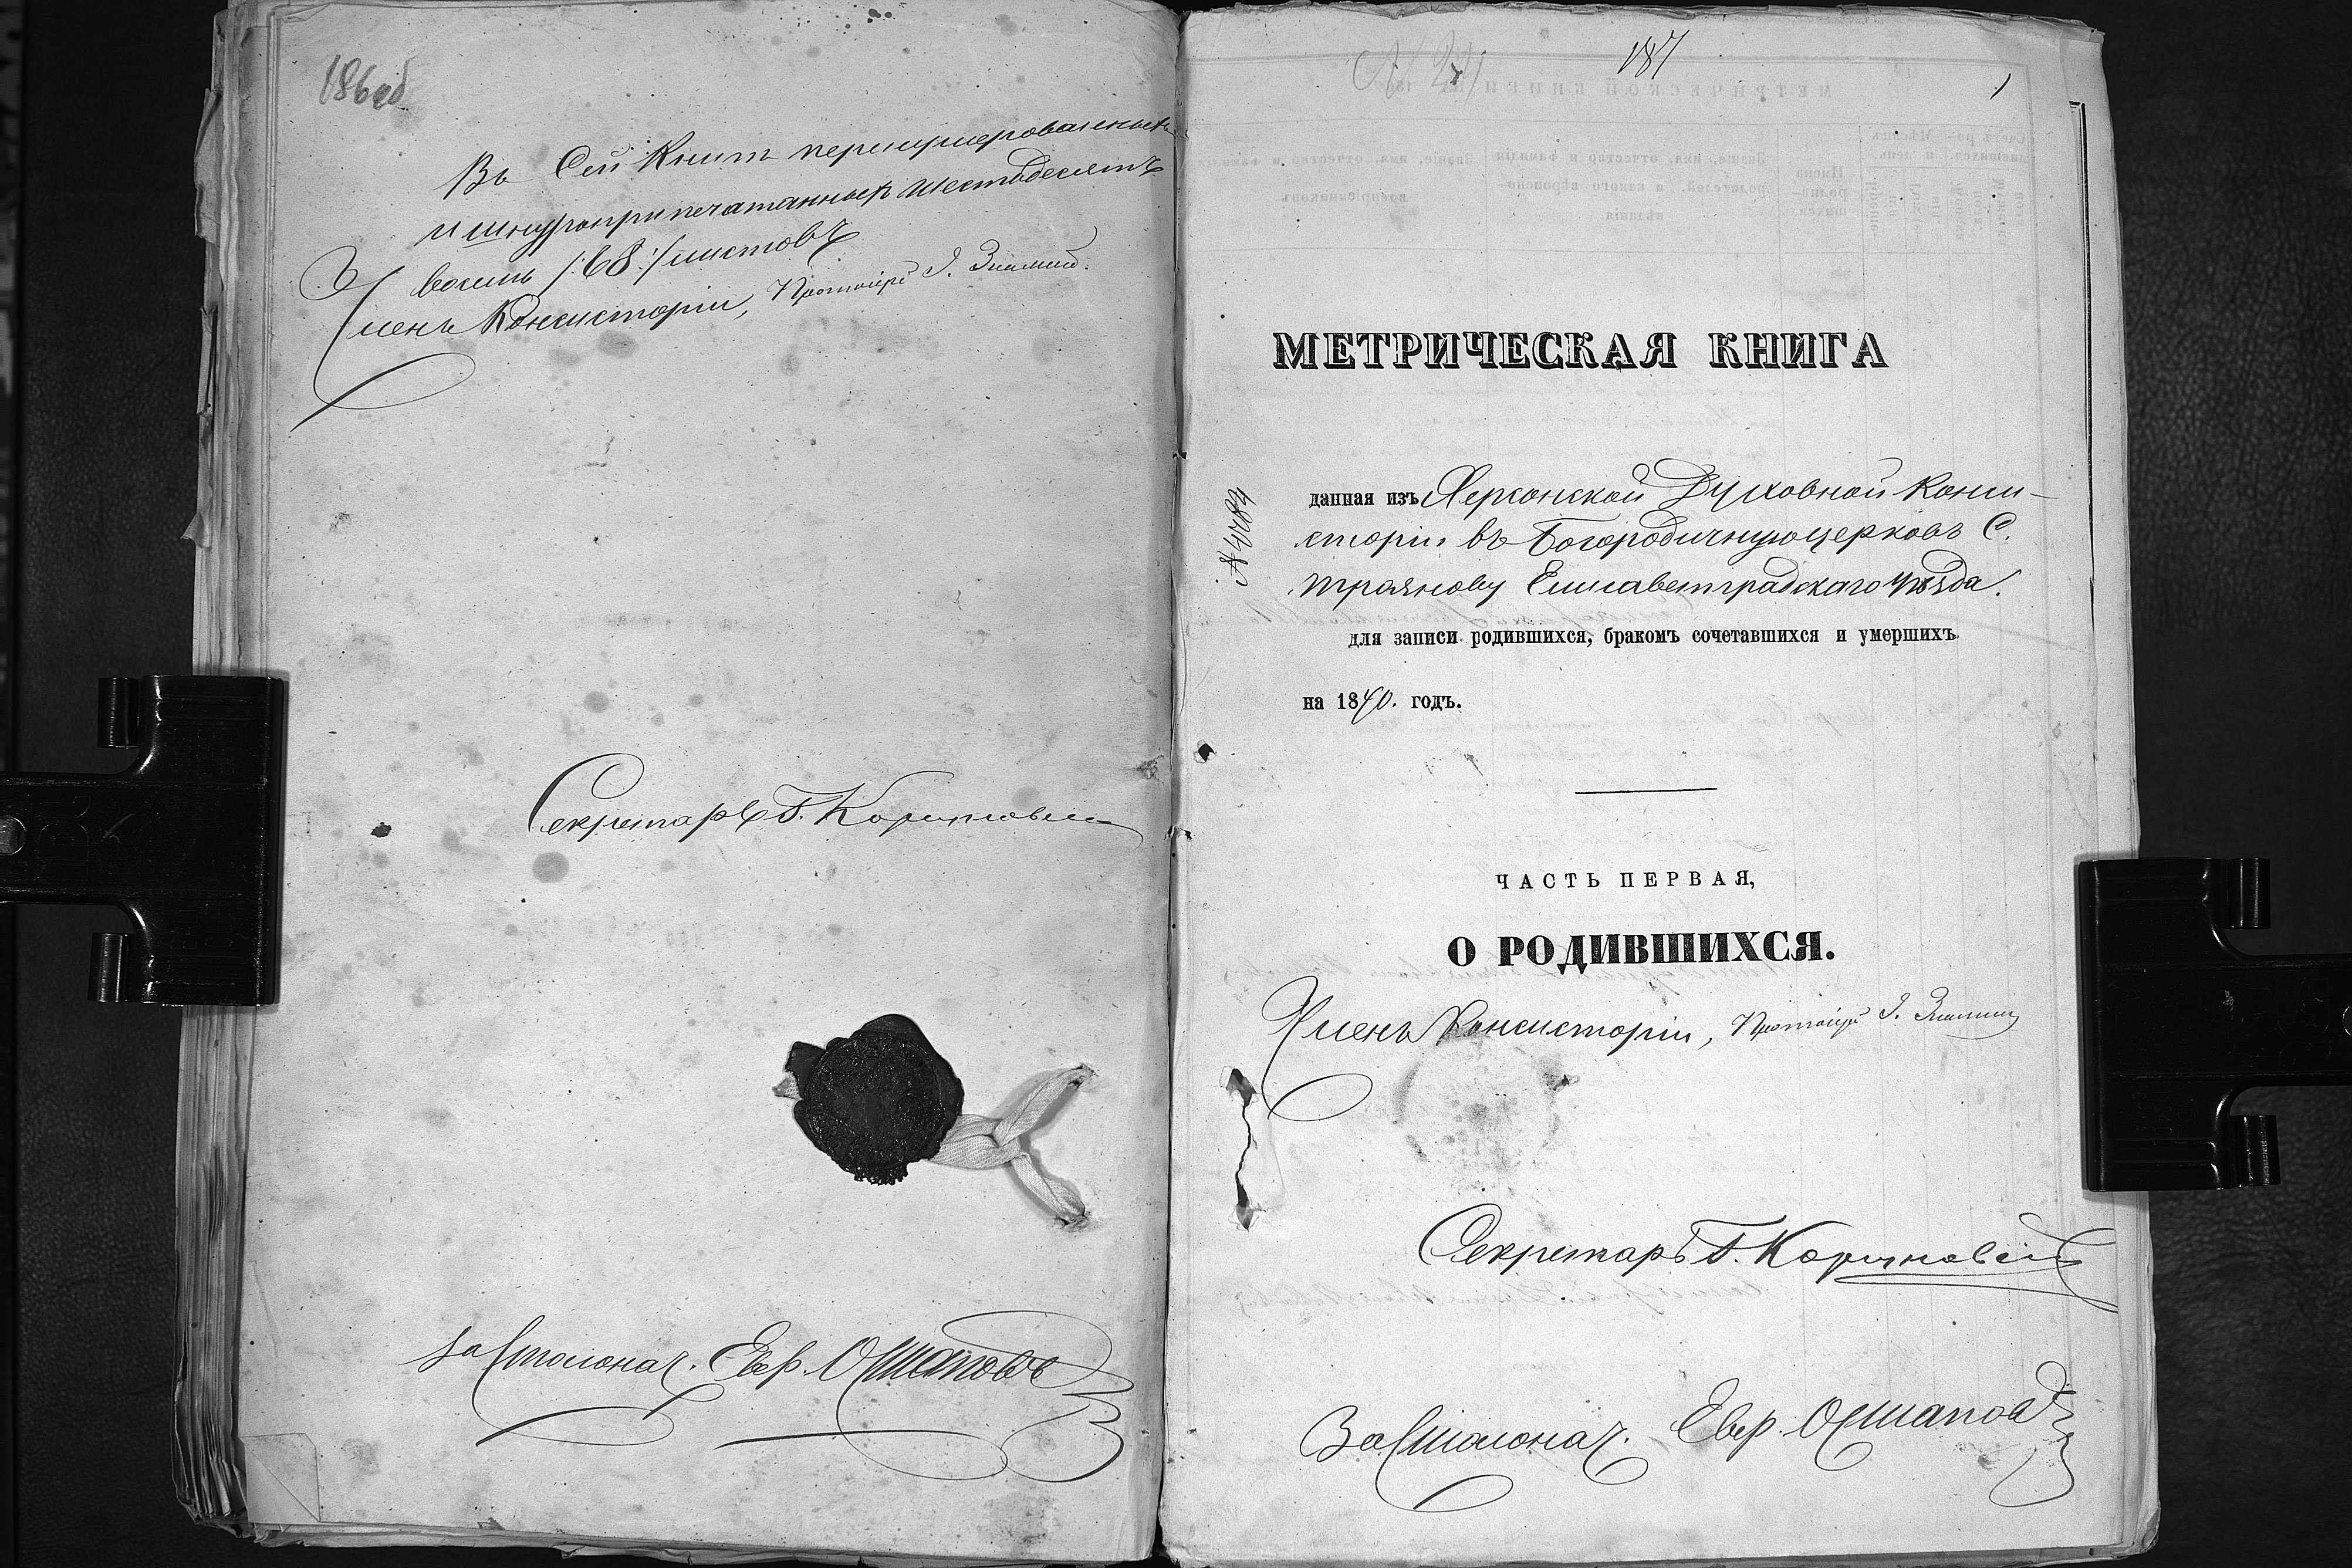 186об
Въ Сей Книге перенумерованныхъ
и шнуроприпечатанныхъ шестьдесятъ
восемь /:68:/ листовъ
Членъ Консисторіи, Протоіерей І.
Секретарь Г.
За Столонач. Евф. Осташовъ
187
1
МЕТРИЧЕСКАЯ КНИГА
данная изъ Херсонской Духовной Конси-
сторіи въ Богородичную церковь С.
Троянову Елисаветградскаго уѣзда.
для записи родившихся, бракомъ сочетавшихся и умершихъ
на 1870. годъ.
ЧАСТЬ ПЕРВАЯ,
О РОДИВШИХСЯ.
Членъ Консисторіи, Протоіерей І.
Секретарь Г.
За Столонач. Евф.